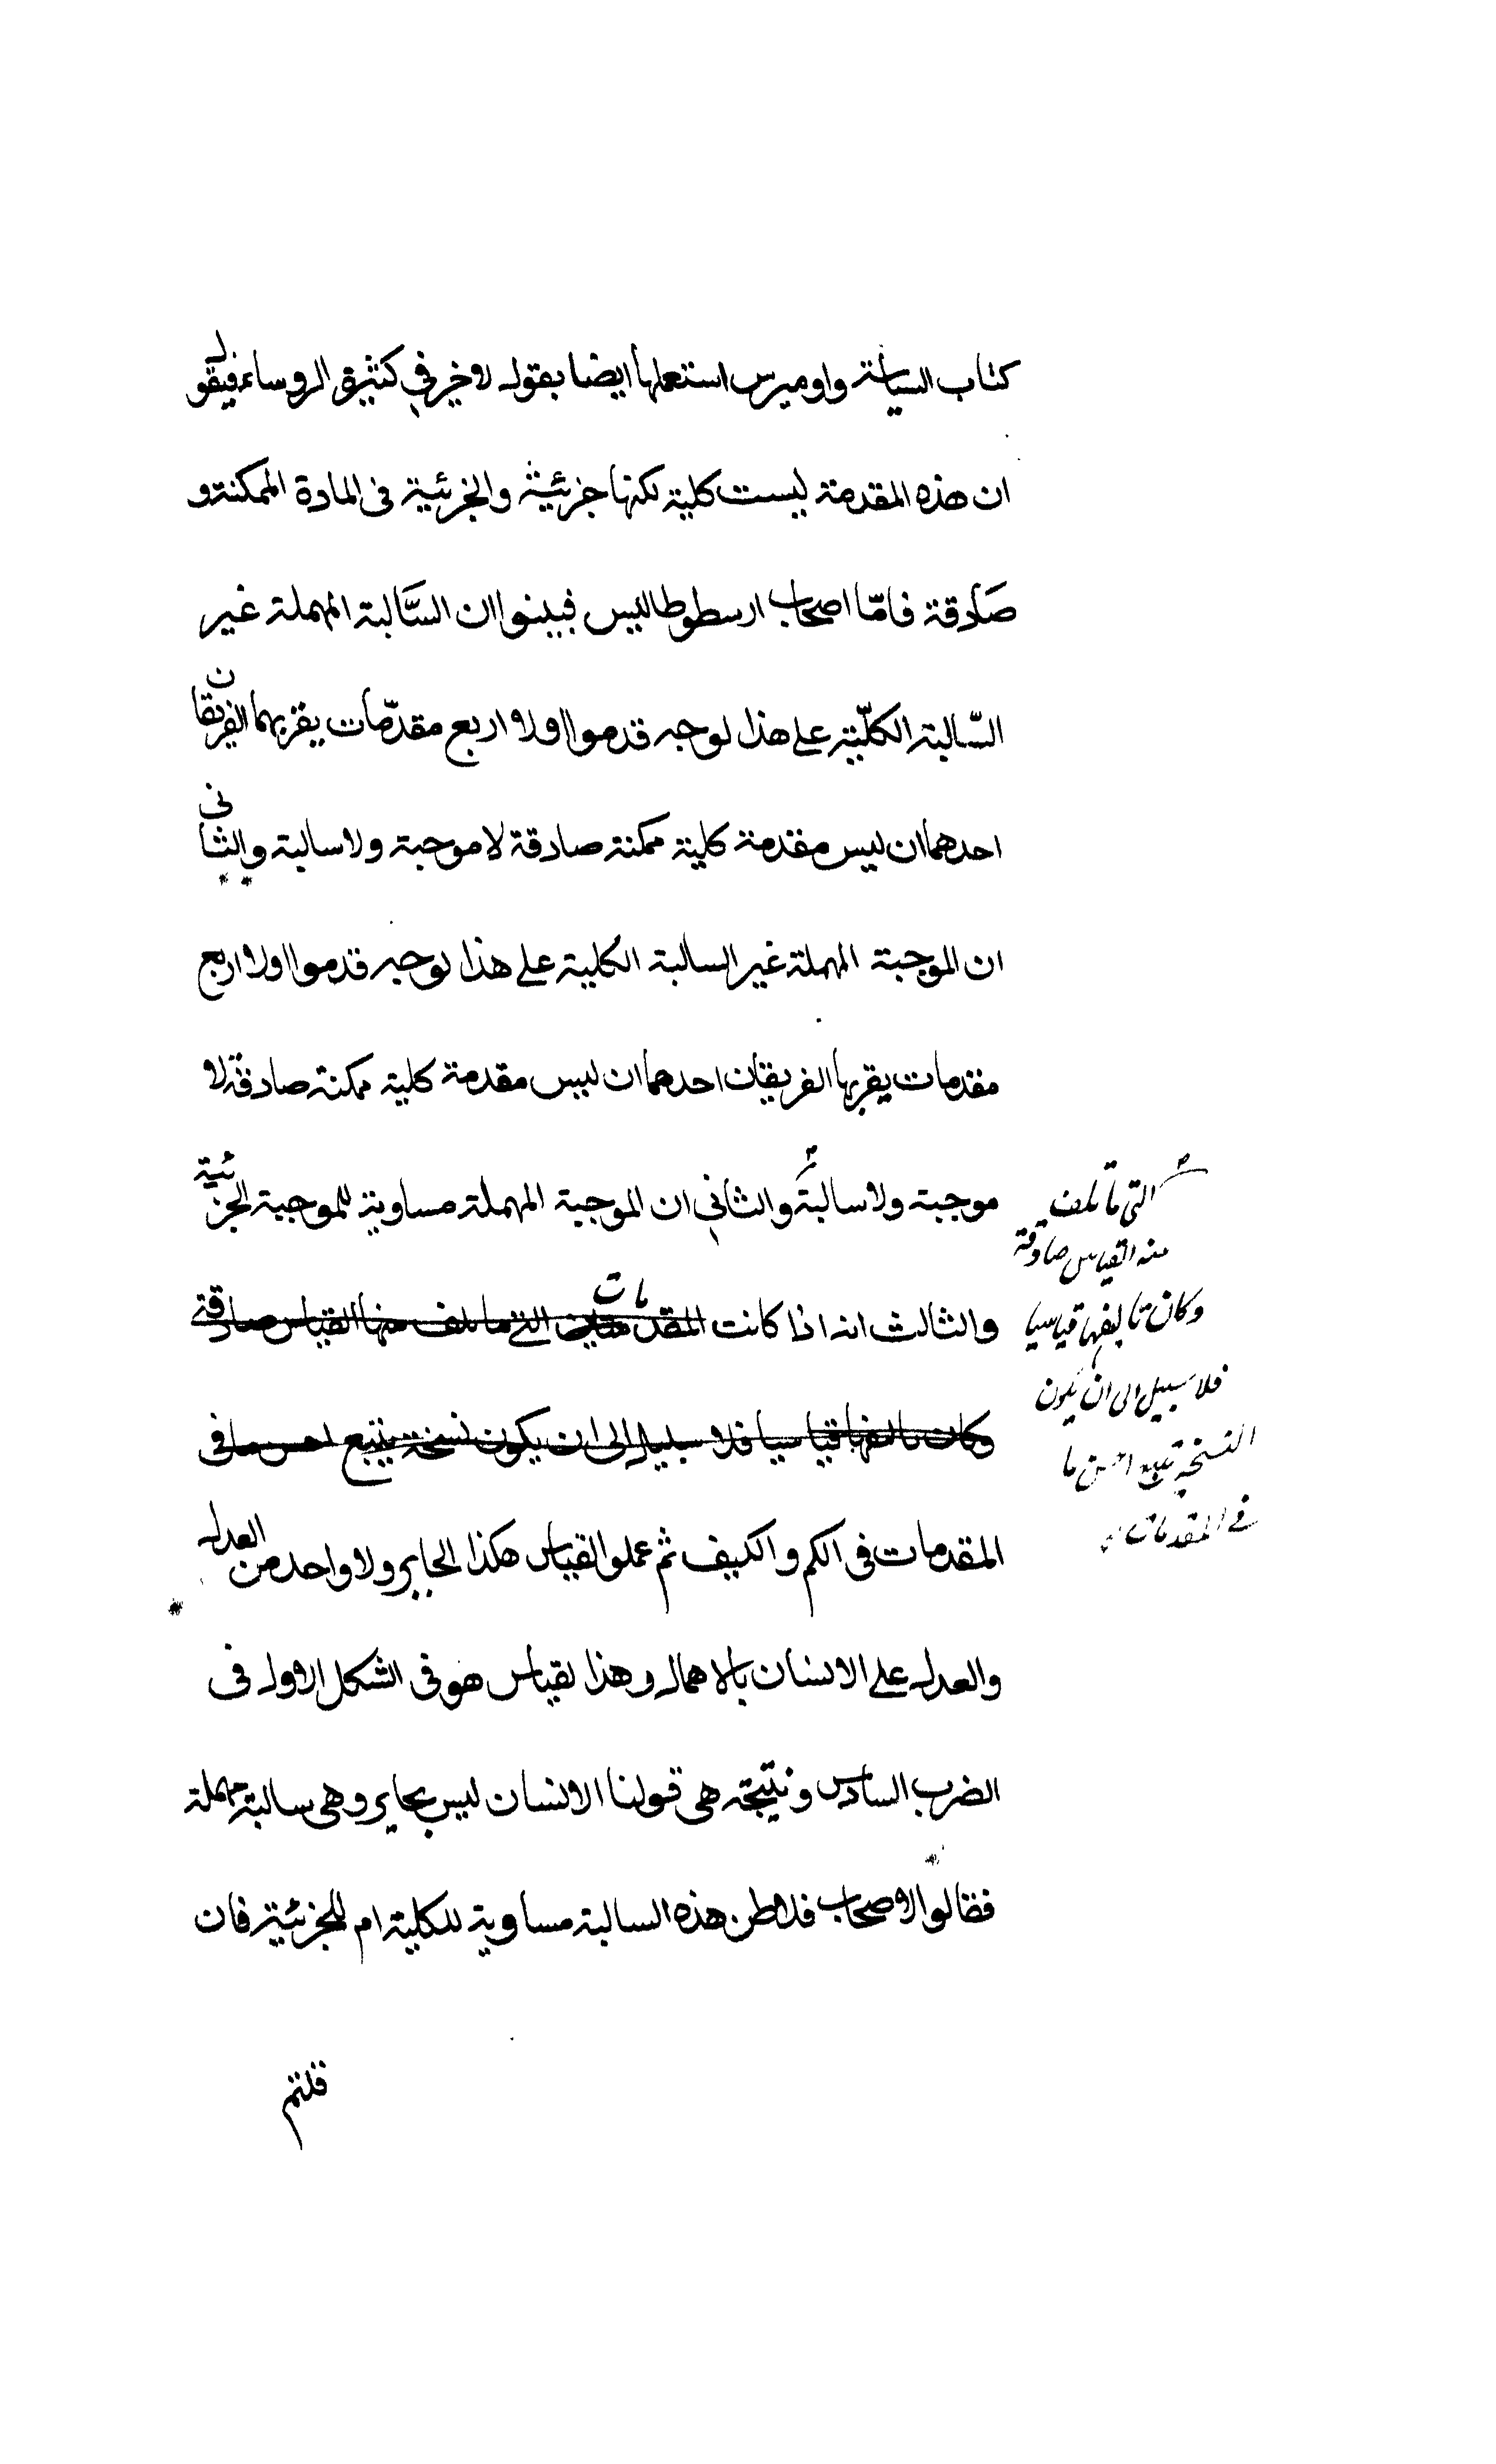 كتاب السياسة واوميرس استعملها ايضا بقوله لاخير في كثيرة الروساء فيقول
ان هذه المقدمة ليست كلية لكنها جزئية والجزئية فى المادة الممكنة و
صادقة فامّا اصحاب ارسطوطاليس فبينوا ان السَّالبة المهملة غير
السّالبة الكلّية على هذا لوجه قدموا اولا اربع مقدّمات يقر بهما الفريقان
احدهما ان ليس مقدمة كلية ممكنة صادقة لا موجبة ولا سالبة والثانى
ان الموجبة المهملة غير السالبة الكلية على هذا لوجه قدموا اولا اربع
مقدمات يقر بها الفريقان احدهما ان ليس مقدمة كلية ممكنة صادقة لا
موجبة ولا سالبة والثاني ان الموجبة المهملة مساوية للموجبة الجزئية
والثالث انه اذا كانت المقدمات التى ما تلف منها القياس صادقة
وكان تاليفها قياسيا فلا سبيل الى ان يكون نسخة يتبع احسن ما فى
المقدمات فى الكم والكيف ثم عملوا القياس هكذا الجاير ولا واحد من العدل
والعدل على الانسان بالاهمال وهذا لقياس هو فى الشكل الاول فى
الضرب السادس ونتيجته هى قولنا الانسان ليس بجاير وهى سالبة مهملة
فقالوا لاصحاب فلاطن هذه السالبة مساوية للكلية ام للجزئية فان
قلتم
التى ما تلف
منه القياس صادقة
وكان تاليفها قياسيا
فلا سبيل الى ان يكون
النسخة تتبع احسن ما
في المقدمات